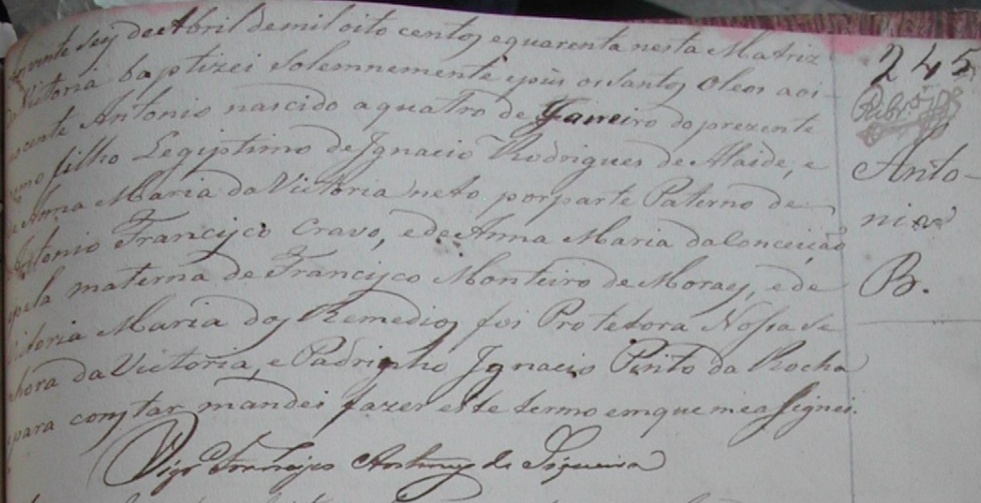 vinte sej de Abril de mil oito centoz e quarenta nesta Matriz
Victoria baptizei Solemnemente epûs os Santoz Oleos aoi-
nocente Antonio nascido a quatro de Janeiro do prezente
filho Legiptimo de Ignacio Rodrigues de Ataide, e
Anna Maria da Victoria neto por parte Paterno de
Antonio Francisco Cravo, e de Anna Maria da Conceição
pela materna de Francisco Monteiro de Moraes, e de
Victoria Maria dos Remedios foi Protetora Nossa Se
nhora da Victoria, e Padrinho Ignacio Pinto da Rocha
para constar mandei fazer este termo em que me assignei.
Vigr.º Francisco Antunes de Siqueira
245
Ribr.º
Anto-
nio
B.